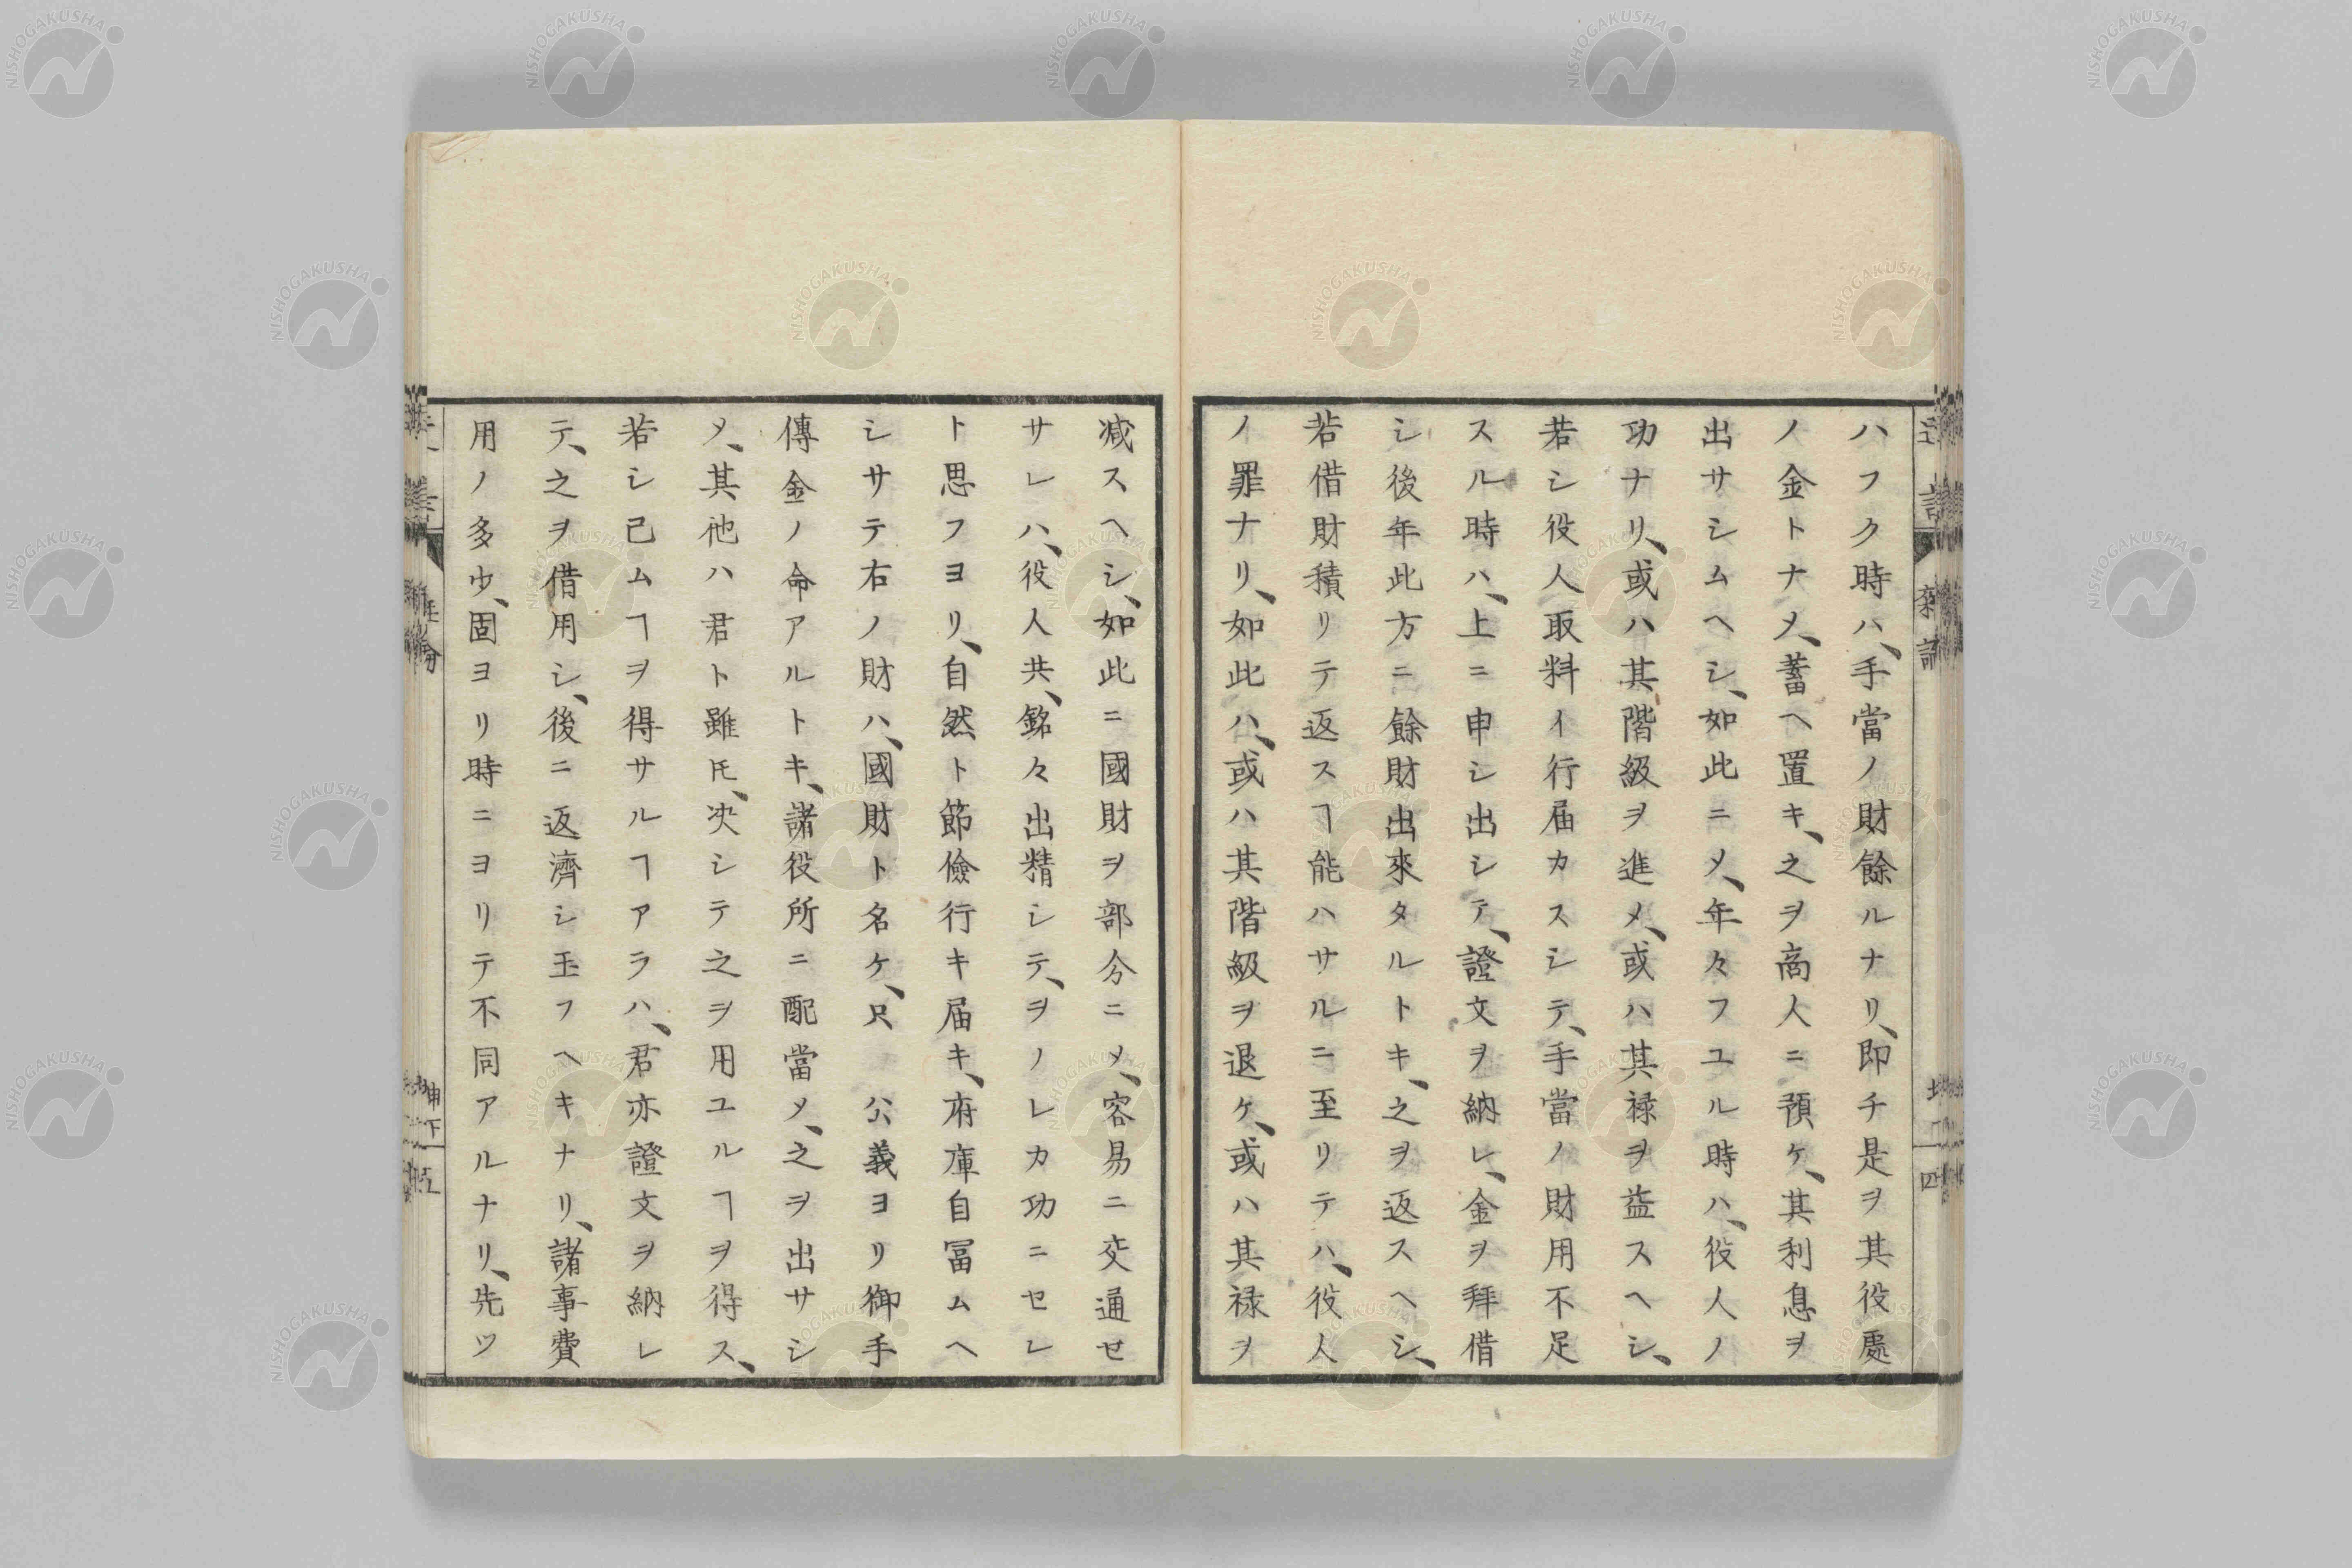 ハフク時ハ、手當ノ財餘ルナリ、即チ是ヲ其役處
ノ金トナメ、蓄ヘ置キ、之ヲ商人ニ預ケ、其利息ヲ
出サシムヘシ、如此ニメ、年々フユル時ハ、役人ノ
功ナリ、或ハ其階級ヲ進メ、或ハ其禄ヲ益スヘシ、
若シ役人取料イ行届カスシテ、手當ノ財用不足
スル時ハ、上ニ申シ出シテ、證文ヲ納レ、金ヲ拜借
シ後年此方ニ餘財出來タルトキ、之ヲ返スヘシ、
若借財積リテ返スヿ能ハサルニ至リテハ、役人
ノ罪ナリ、如此ハ、或ハ其階級ヲ退ケ、或ハ其禄ヲ
减スヘシ、如此ニ國財ヲ部分ニメ、容易ニ交通セ
サレハ、役人共、銘々出精シテ、ヲノレカ功ニセレ
ト思フヨリ、自然ト節儉行キ届キ、府庫自冨ムヘ
シサテ右ノ財ハ、國財ト名ケ、只 公義ヨリ御手
傳金ノ命アルトキ、諸役所ニ配當メ、之ヲ出サシ
メ、其他ハ君ト雖𪜈、决シテ之ヲ用ユルヿヲ得ス、
若シ已ムヿヲ得サルヿアラハ、君亦證文ヲ納レ
テ、之ヲ借用シ、後ニ返濟シ玉フヘキナリ、諸事費
用ノ多少、固ヨリ時ニヨリテ不同アルナリ、先ツ
NISHOGAKUSHA